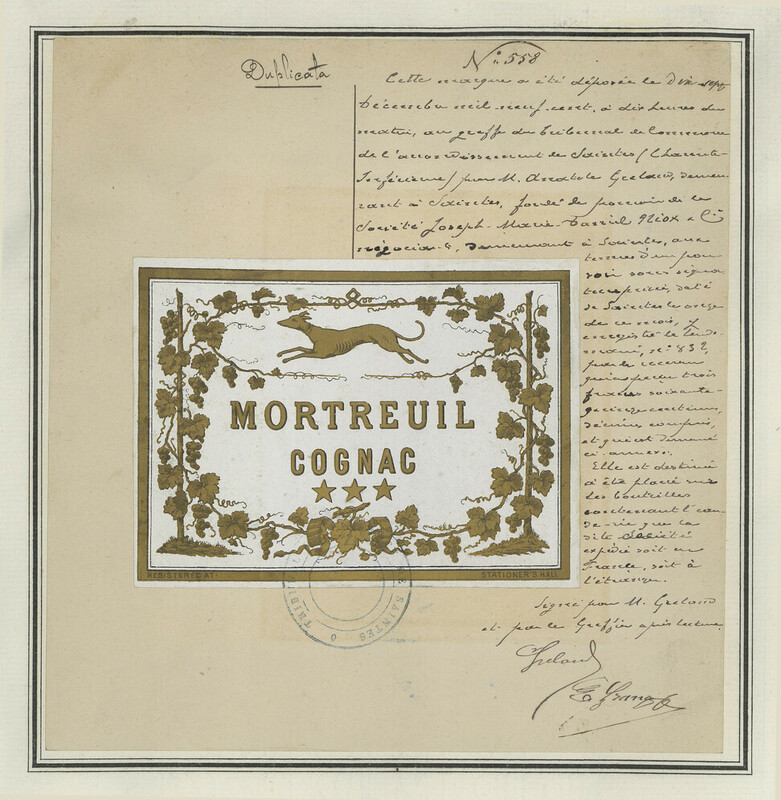 Duplicata
N° 558
Cette marque a été déposée le Dix sept
Décembre mil neuf cent, à dix heures du
matin, au greffe du Tribunal de Commerce
de l'arrondissement de Saintes (Charente-
Inférieure) par M. Anatole Grelaud, demeu
rant à Saintes, fondé de pouvoir de la
Société Joseph-Marie-Daniel & Cie
négociants, demeurant à Saintes, aux
termes d'un pou
voir sous signa
ture privée, daté
de Saintes le onze
de ce mois,
enregistré le lende
main, n° 832,
par le receveur
qui a perçu trois
francs soixante-
quinze centimes,
décimes compris,
et qui est demeuré
ci-annexé.
Elle est destinée
à être placée sur
les bouteilles
contenant l'eau-
de-vie que la
dite Société
expédie soit en
France, soit à
l'étranger.
Signé par M. Grelaud
et par le Greffier après lecture.
Grelaud
MORTREUIL
COGNAC
REGISTERED AT
STATIONER'S HALL
SAINTES